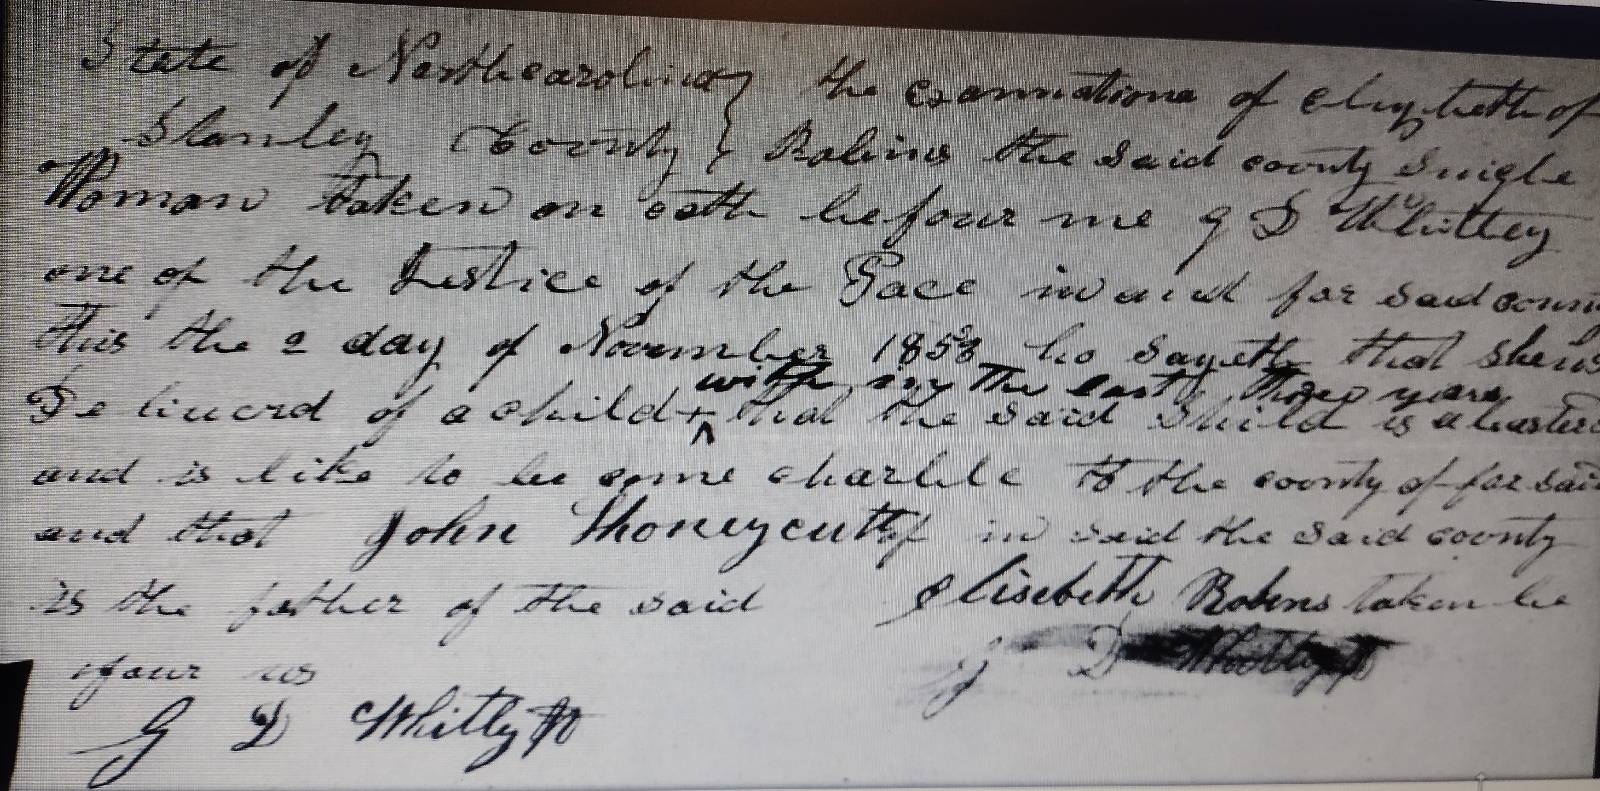 State of Northcarolina } the examnations of elizebeth of
Stanley County } Robins the said county Single
Woman taken on oath before me G D Whitley
one of the Justice of the Pace in and for said coun
this the 2 day of November 1853 ho sayeth that she is
with in the last three years
De liverd of a child ^ that the said Child is a basterd
and is like to be come charble to the county of for said
and that John Honeycutt of in said the said county
is the father of the said Elisebeth Robens taken be
G D Whitly
efour us
G D Whitly JP